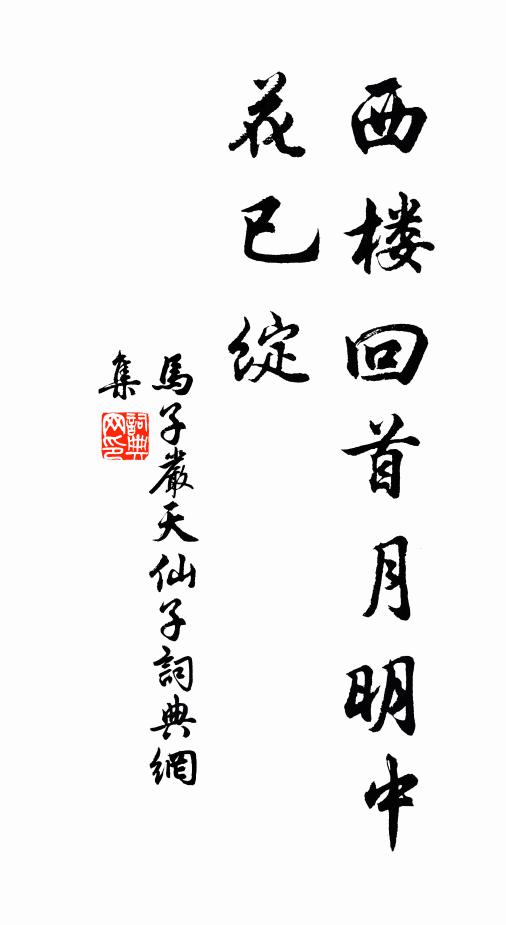 西楼回首月明中
花已綻
馬子嚴天仙子詞典網
集
詞典
网印